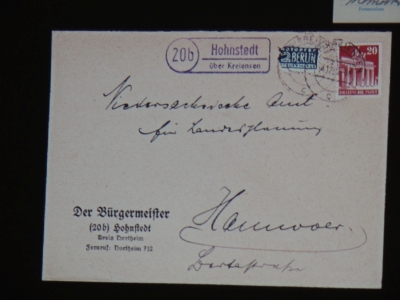 20b
Hohnstedt
über Kreiensen
NOTOPFER
2 BERLIN
STEUERMARKE
20
DEUTSCHE POST
Niedersächsische Amt
für Landesplanung
Der Bürgermeister
(20b) Hohnstedt
Kreis Northeim
Fernruf: Northeim 712
Hannover